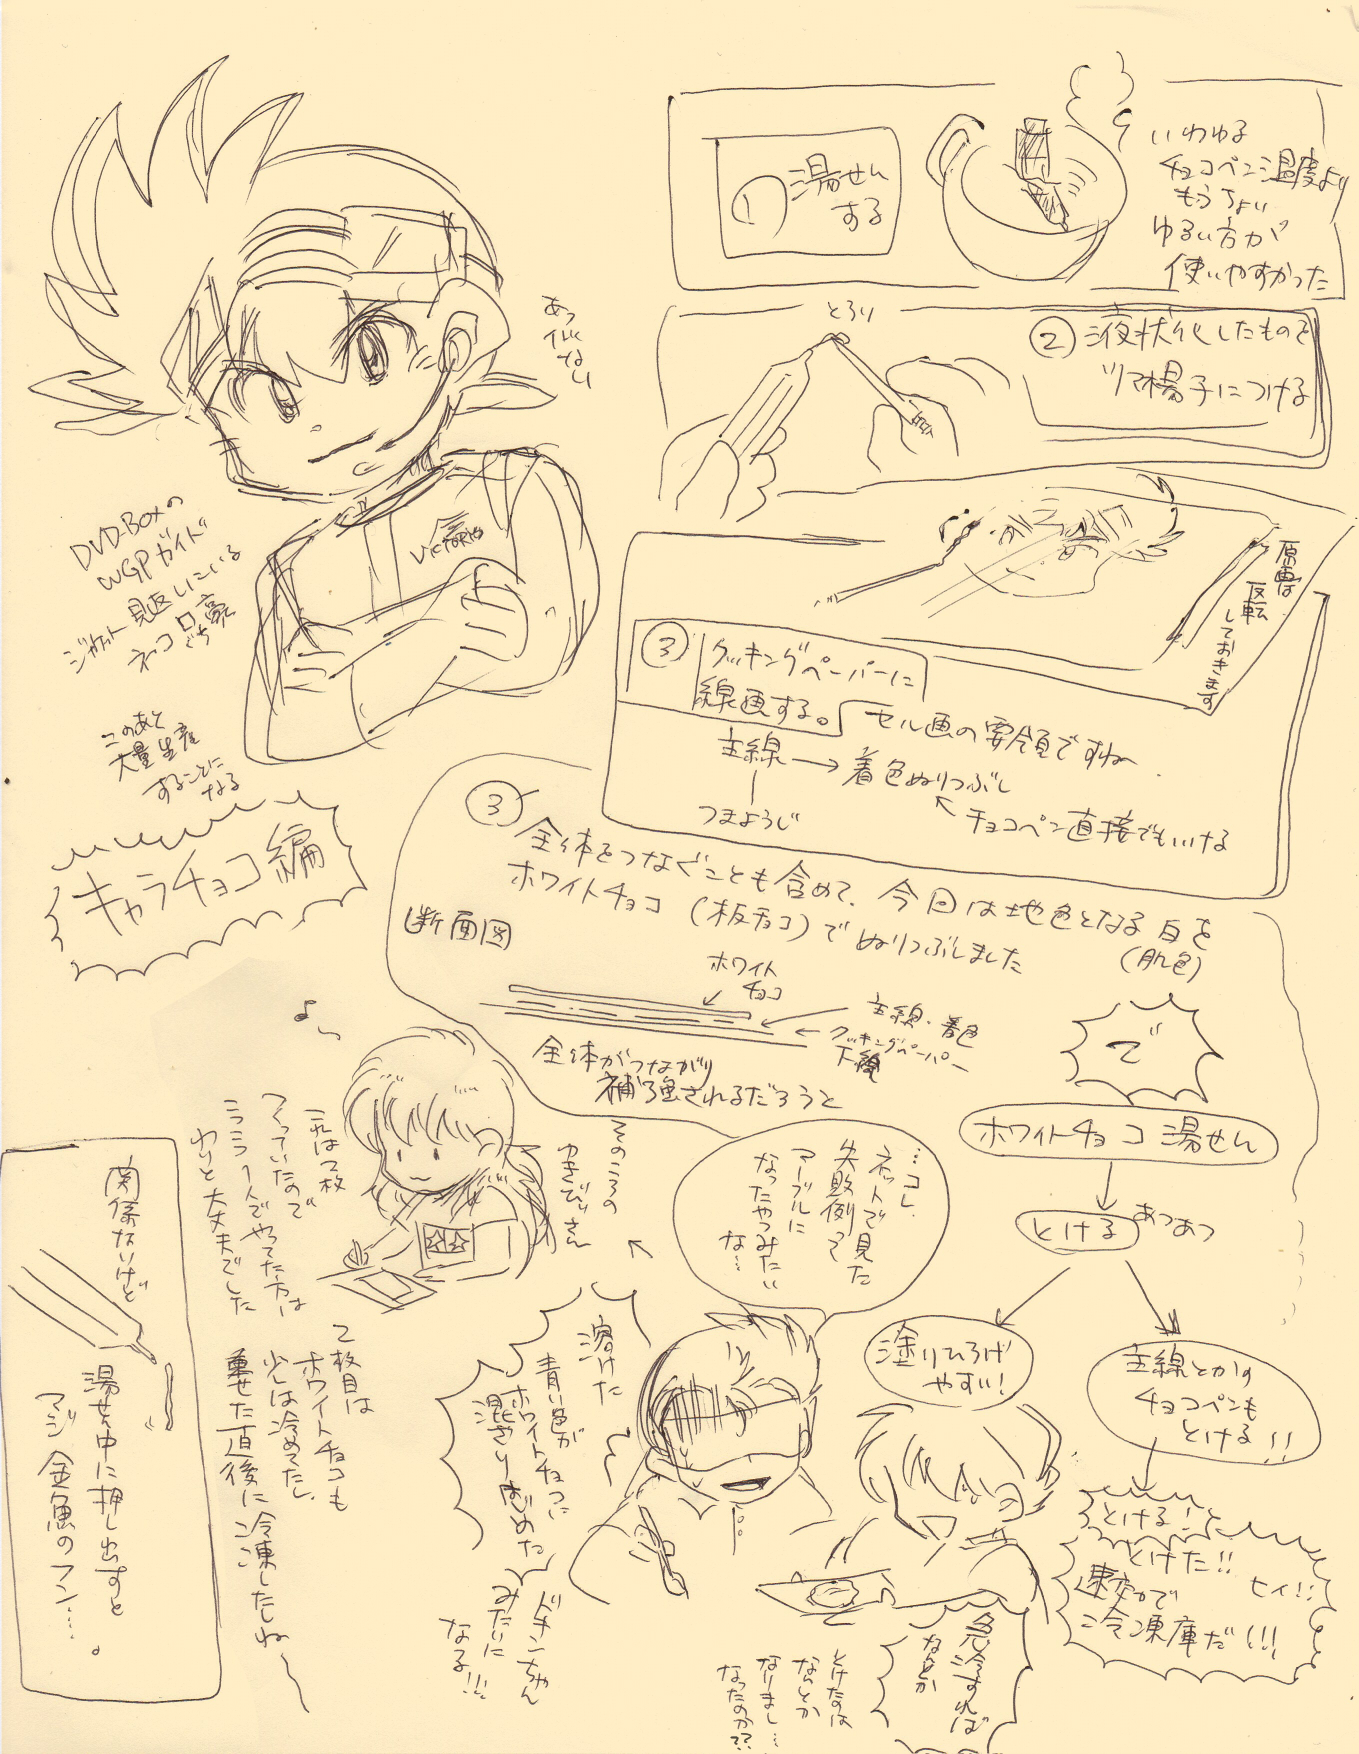 ① 湯せん
する
いわゆる
チョコペン温度より
もうちょい
ゆるい方が
使いやすかった
とろり
② 液状化したものを
ツマ楊子につける
原画は
反転
しておきます
③ クッキングペーパーに
線画する。
セル画の要領ですね
主線→着色ぬりつぶし
つまようじ
チョコペン直接でもいける
VICTORYS
DVD-BOXの
WGPガイド
ジャケット見返しにいる
ネッコロ豪
ぐち
このあと
大量生産
することに
なる
キャラチョコ編
③
全体をつなぐことも含めて、今日は地色となる白を
(肌色)
ホワイトチョコ(板チョコ)でぬりつぶしました
断面図
ホワイト
チョコ
主線・着色
クッキングペーパー
下絵
全体がつながり
補強されるだろうと
で
ホワイトチョコ湯せん
とける
あつあつ
塗りひろげ
やすい!
主線とかの
チョコペンも
とける!!
とける!と
とけた!!
ヒィ!!
速攻で
冷凍庫だ!!!
…コレ、
ネットで見た
失敗例って
マーブルに
なったやつみたい
な…
そのころの
ゆきびぃさん
これは2枚
つくっていたので
こうこう1人でやってた方は
わりと大丈夫でした
2枚目は
ホワイトチョコも
少しは冷めてたし、
乗せた直後に冷凍したしね
関係ないけど
湯せん中に押し出すと
マジ金魚のフン…。
溶けた
青い色が
ホワイトチョコに
混ざりはじめた
ドキンちゃん
みたいに
なる!!!
急冷すれば
なんとか
とけたのは
なんとか
なりまし…
なったのか??